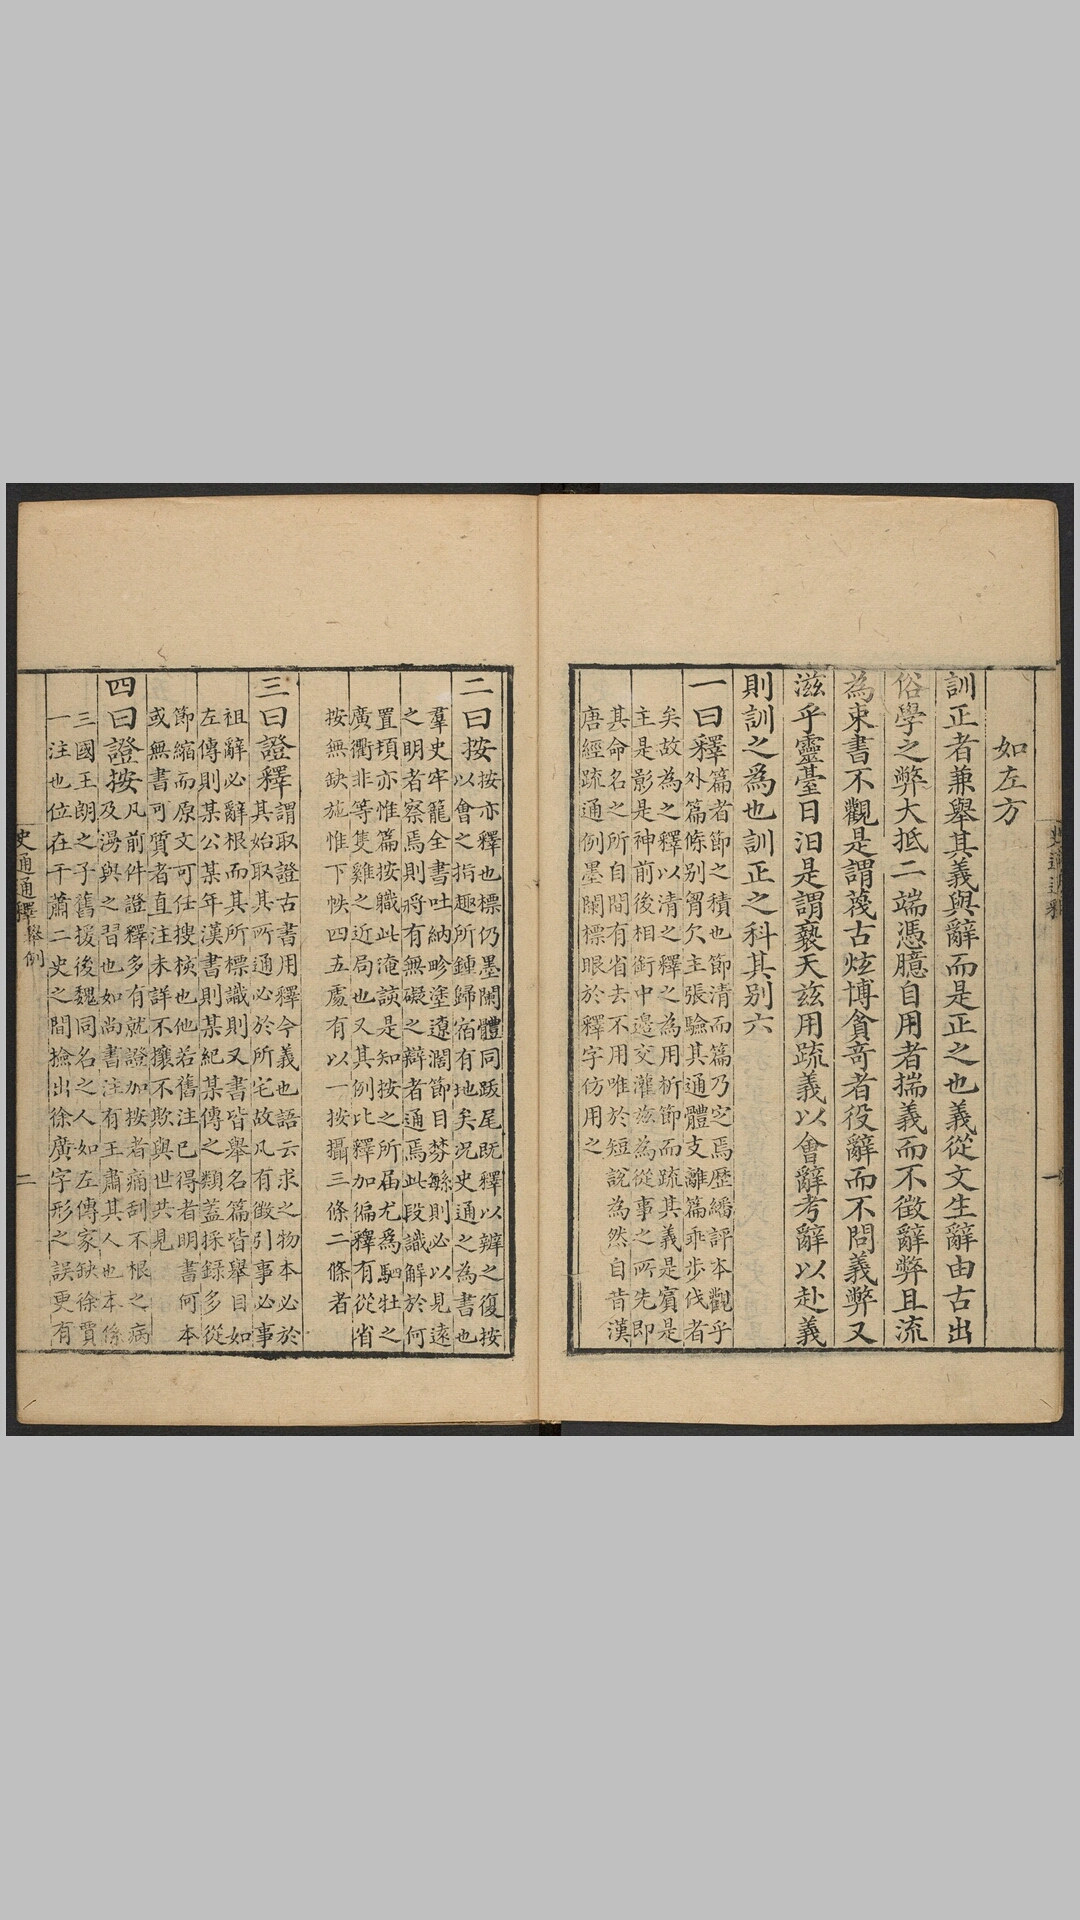 如左方
訓正者兼舉其義與辭而是正之也義從文生辭由古出
俗學之弊大抵二端憑臆自用者揣義而不徵辭弊且流
為束書不觀是謂蔑古炫博貪奇者役辭而不問義弊又
滋乎靈臺日汨是謂褻天茲用疏義以會辭考辭以赴義
則訓之為也訓正之科其別六
一曰釋
篇者節之積也節清而篇乃定焉歷繙評本觀乎
外篇條別胃欠主張驗其通體支離篇乖步伐者
矣故為之釋以清之釋之為用析節而疏其義是賓是
主是影是神前後相銜中邊交灌茲為從事之所先即
其命名之所自間有省去不用唯於短說為然自昔漢
唐經疏通例墨闌標眼於釋字仿用之
二曰按
按亦釋也標仍墨闌體同跋尾既釋以辨之復按
以會之指趣所鍾歸宿有地矣況史通之為書也
羣史牢籠全書吐納畛塗遼濶節目棼緐則必以見遠
之明者察焉則將有無礙之辯者通焉此段識解於何
置頊亦惟篇按職此淹該是知按之所届尤為駉牡之
廣衢非等隻雞之近局也又其例比釋加徧釋有從省
按無缺施惟下帙四五處有以一按攝三條二條者
三曰證釋
謂取證古書用釋今義也語云求之物本必於
其始取其所通必於所宅故凡有徵引事必事
祖辭必辭根而其所標識則又書皆舉名篇皆舉目如
左傳則某公某年漢書則某紀某傳之類蓋採錄多從
節縮而原文可任搜檢也他若舊注已得者明書何本
或無書可質者直注未詳不攘不欺與世共見
四曰證按
凡前件證釋多有就證加按者痛刮不根之病
及溷與之習也如尚書注有王肅其人也本係
三國王朗之子舊援後魏同名之人如左傳家缺徐賈
一注也位在干蕭二史之間撿出徐廣字形之誤更有
史通通釋 舉例 二